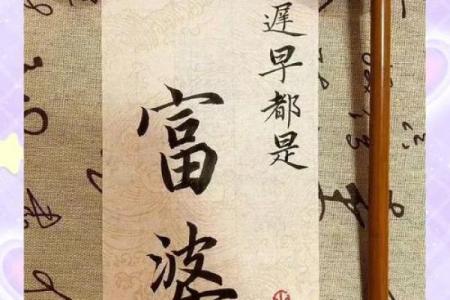 遲早都是
富婆